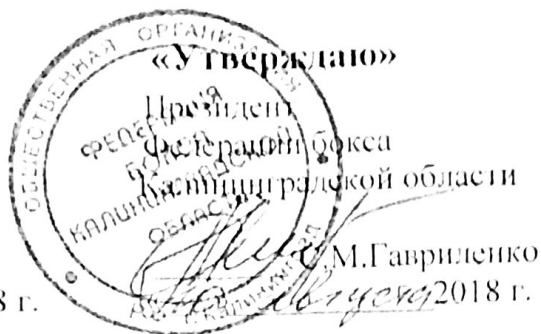 «Утверждаю»
Президент
Федерации бокса
Калининградской области
М.Гавриленко
августа 2018 г.
8 г.
ОБЩЕСТВЕННАЯ ОРГАНИЗАЦИЯ
ФЕДЕРАЦИЯ
БОКСА
КАЛИНИНГРАДСКОЙ
ОБЛАСТИ
г. КАЛИНИНГРАД